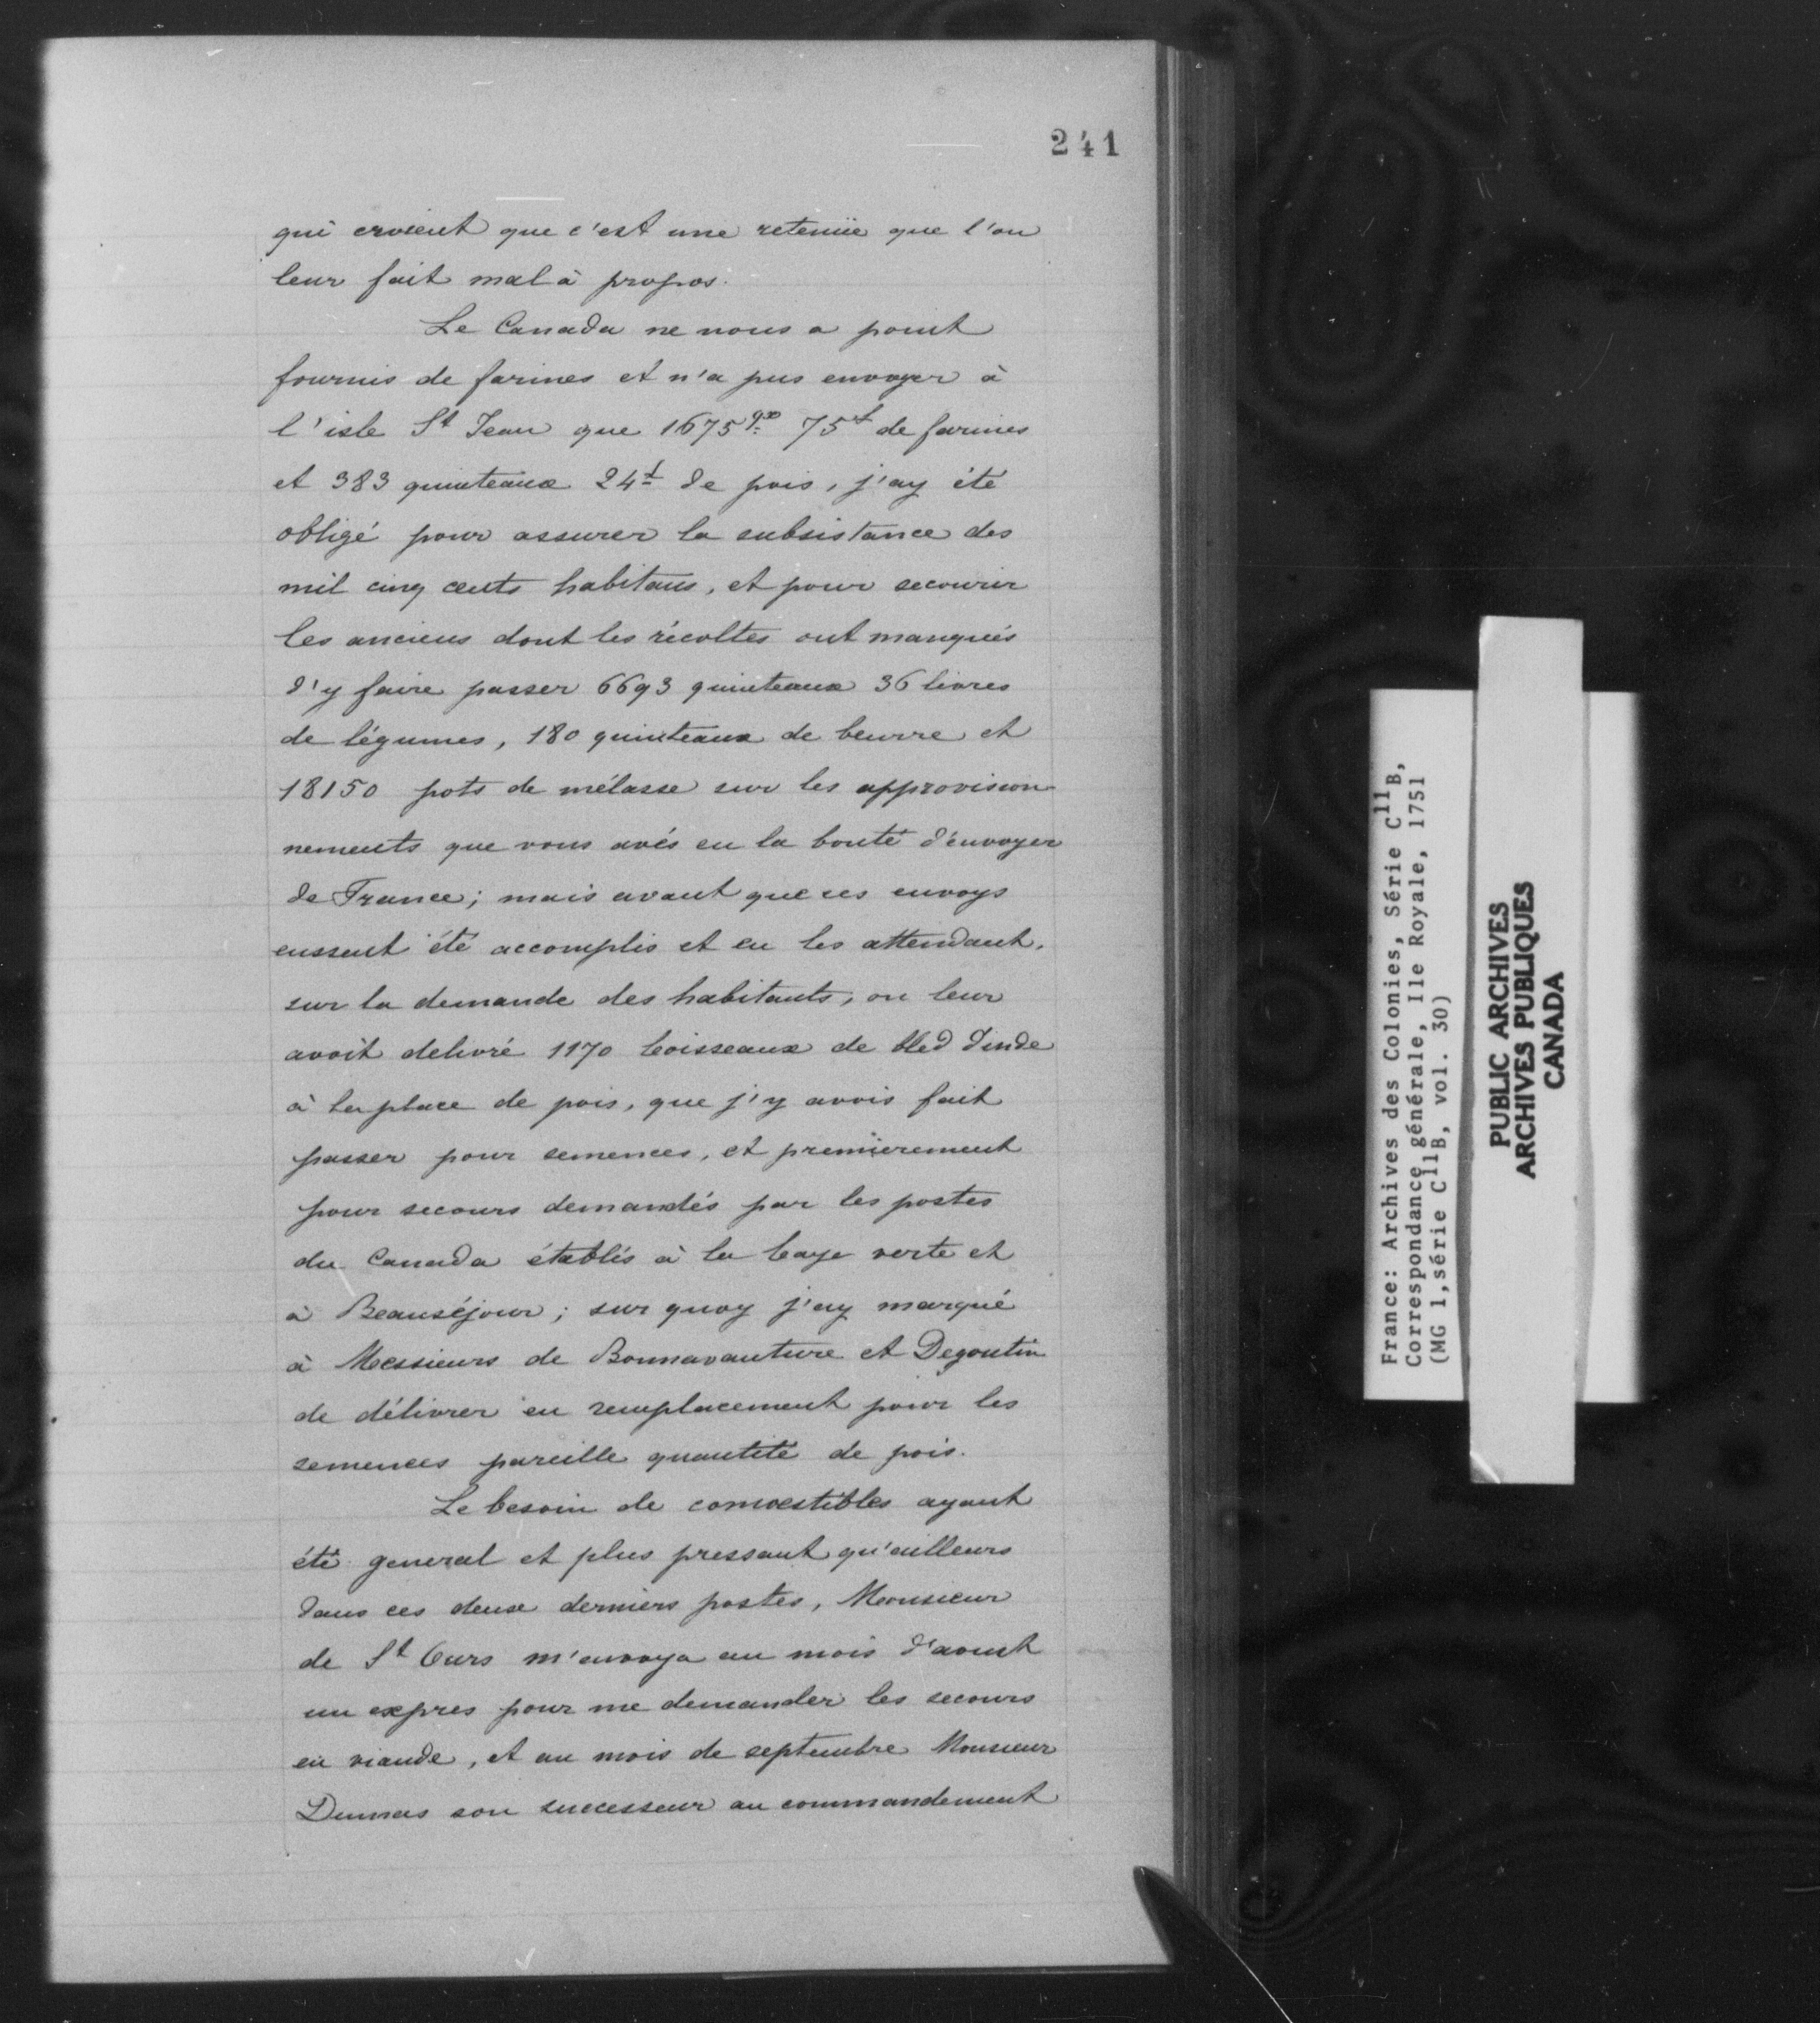 241
qui croient que c'est une retenüe que l'on
leur fait mal à propos.
Le Canada ne nous a point
fournis de farines et n'a pus envoyer à
l'isle St Jean que 1675 qx 75 l de farines
et 383 quinteaux 24 l de pois, j'ay été
obligé pour assurer la subsistance des
mil cinq cents habitans, et pour secourir
les anciens dont les récoltes ont manqués
d'y faire passer 6693 quinteaux 36 livres
de légumes, 180 quinteaux de beurre et
18150 pots de mélasse sur les approvision
nements que vous avés eu la bonté d'envoyer
de France; mais avant que ces envoys
eussent été accomplis et en les attendant,
sur la demande des habitants, on leur
avoit delivré 1170 boisseaux de bled d'inde
à la place de pois, que j'y avois fait
passer pour semences, et premierement
pour secours demandés par les postes
du Canada établis à la baye verte et
à Beauséjour; sur quoy j'ay marqué
à Messieurs de Bonnavanture et Degoutin
de délivrer en remplacement pour les
semences pareille quantité de pois.
Le besoin de comestibles ayant
été general et plus pressant qu'ailleurs
dans ces deux derniers postes, Monsieur
de St Ours m'envoya au mois d'aoust
un expres pour me demander les secours
en viande, et au mois de septembre Monsieur
Dumas son successeur au commandement
France: Archives des Colonies, Série C11B,
Correspondance générale, Ile Royale, 1751
(MG 1, série C11B, vol. 30)
PUBLIC ARCHIVES
ARCHIVES PUBLIQUES
CANADA